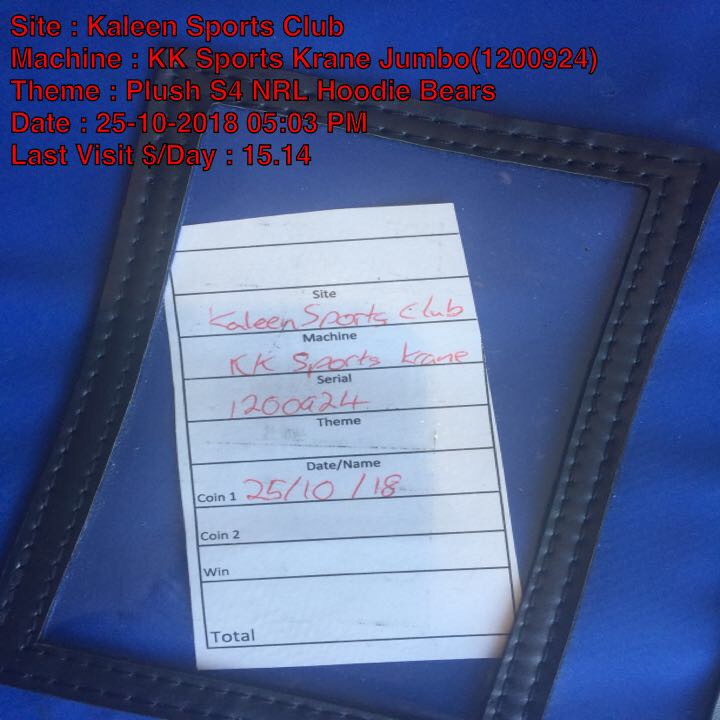 Site : Kaleen Sports Club
Machine : KK Sports Krane Jumbo(1200924)
Theme : Plush S4 NRL Hoodie Bears
Date : 25-10-2018 05:03 PM
Last Visit $/Day : 15.14
Site
Kaleen Sports Club
Machine
KK Sports Krane
Serial
1200924
Theme
Date/Name
Coin 1 25/10/18
Coin 2
Win
Total